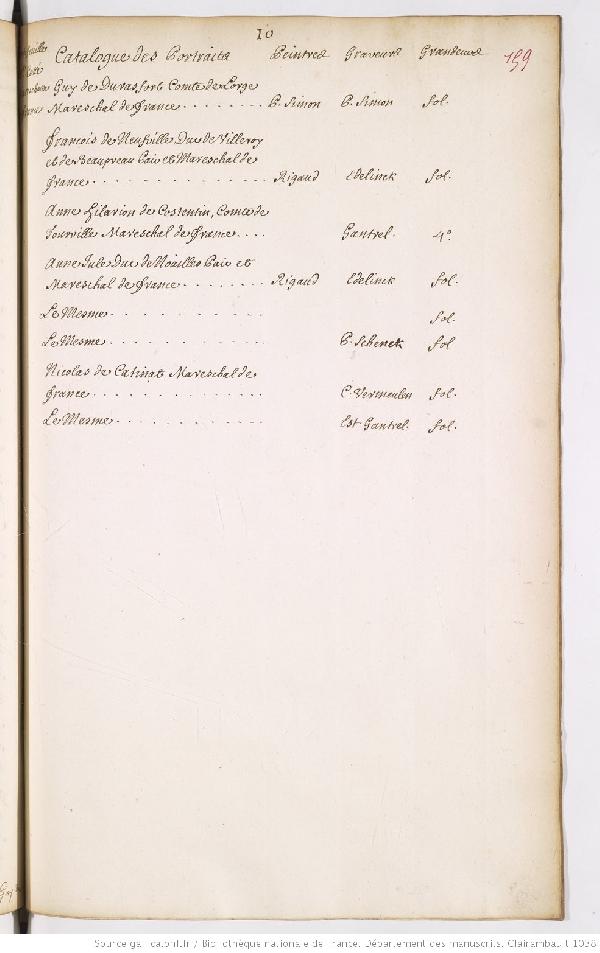 10
Catalogue des Portraits Peintres Graveurs Grandeurs 159
Guy de Durasfort Comte de Lorge
Mareschal de france . . . . . . . . P. Simon P. Simon fol.
françois de Neufville Duc de Villeroy
et de Beaupreau Pair et Mareschal de
france . . . . . . . . . . . . . Rigaud Edelinck fol.
Anne hilarion de Costentin, Comte de
Tourville Mareschal de france . . . . Gantrel. 4º
Anne Jule Duc de Noailles Pair et
Mareschal de france . . . . . . . . Rigaud Edelinck fol.
Le Mesme . . . . . . . . . . . . fol.
Le Mesme . . . . . . . . . . . . P. Schenck fol
Nicolas de Catinat Mareschal de
france . . . . . . . . . . . . . C. Vermeulen fol.
Le Mesme . . . . . . . . . . . . Est Gantrel. fol.
Source gallica.bnf.fr / Bibliothèque nationale de France. Département des manuscrits. Clairambault 1038